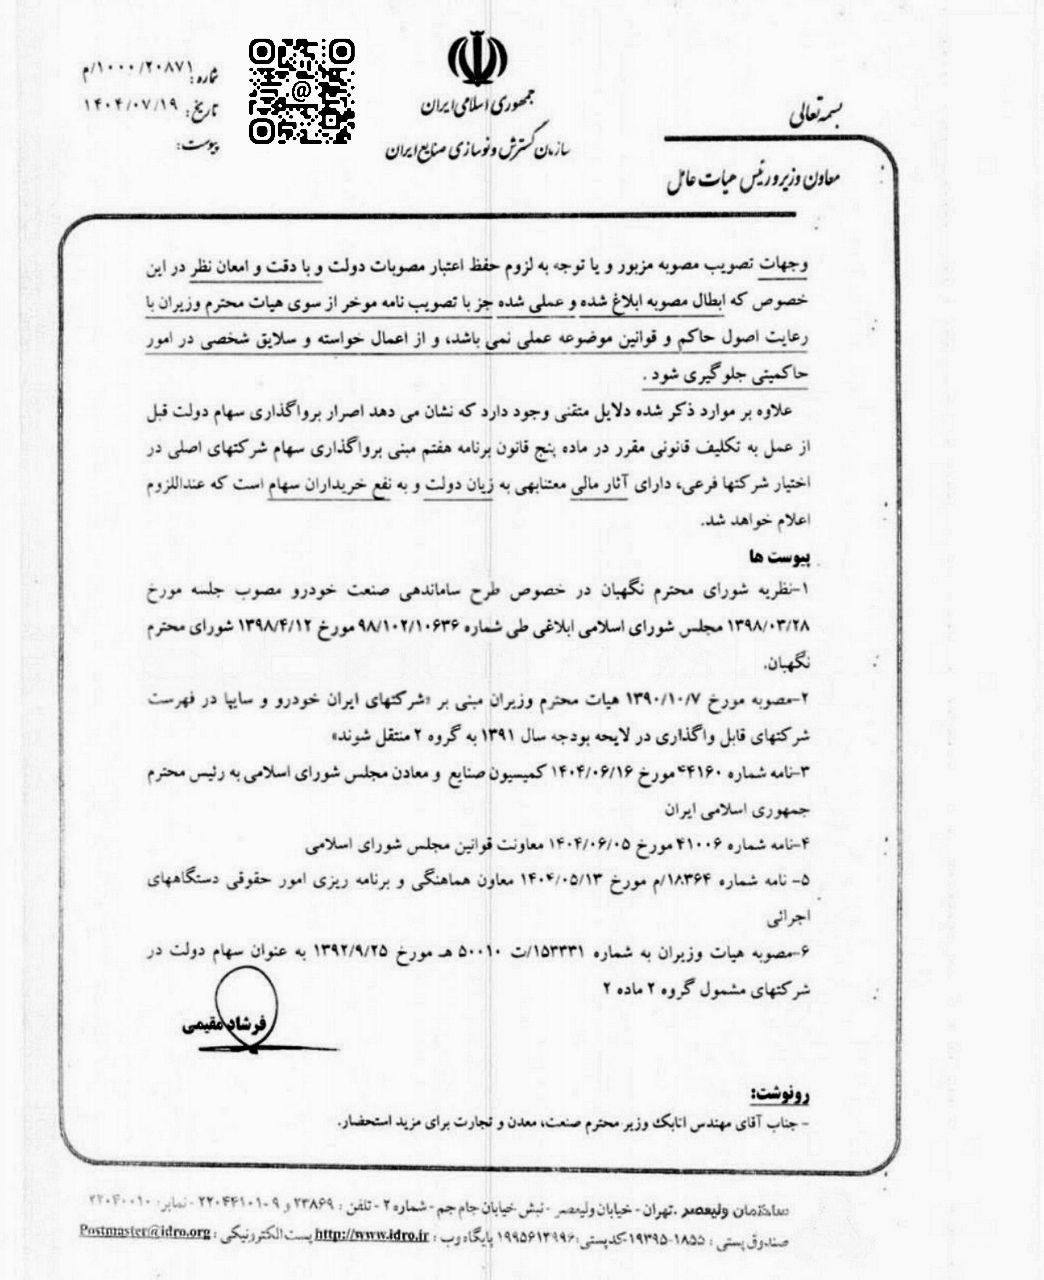 بسمه تعالی
جمهوری اسلامی ایران
سازمان گسترش و نوسازی صنایع ایران
معاون وزیر و رئیس هیات عامل
شماره: ۱۰۰۰/۲۰۸۷۱/م
تاریخ: ۱۴۰۴/۰۷/۱۹
پیوست:
وجهات تصویب مصوبه مزبور و یا توجه به لزوم حفظ اعتبار مصوبات دولت و با دقت و امعان نظر در این
خصوص که ابطال مصوبه ابلاغ شده و عملی شده جز با تصویب نامه موخر از سوی هیات محترم وزیران با
رعایت اصول حاکم و قوانین موضوعه عملی نمی باشد، و از اعمال خواسته و سلایق شخصی در امور
حاکمیتی جلوگیری شود .
علاوه بر موارد ذکر شده دلایل متقنی وجود دارد که نشان می دهد اصرار برواگذاری سهام دولت قبل
از عمل به تکلیف قانونی مقرر در ماده پنج قانون برنامه هفتم مبنی برواگذاری سهام شرکتهای اصلی در
اختیار شرکتها فرعی، دارای آثار مالی معتنابهی به زیان دولت و به نفع خریداران سهام است که عنداللزوم
اعلام خواهد شد.
پیوست ها
۱-نظریه شورای محترم نگهبان در خصوص طرح ساماندهی صنعت خودرو مصوب جلسه مورخ
۱۳۹۸/۰۳/۲۸ مجلس شورای اسلامی ابلاغی طی شماره ۹۸/۱۰۲/۱۰۶۳۶ مورخ ۱۳۹۸/۴/۱۲ شورای محترم
نگهبان.
۲-مصوبه مورخ ۱۳۹۰/۱۰/۷ هیات محترم وزیران مبنی بر «شرکتهای ایران خودرو و سایپا در فهرست
شرکتهای قابل واگذاری در لایحه بودجه سال ۱۳۹۱ به گروه ۲ منتقل شوند»
۳-نامه شماره ۴۴۱۶۰ مورخ ۱۴۰۴/۰۶/۱۶ کمیسیون صنایع و معادن مجلس شورای اسلامی به رئیس محترم
جمهوری اسلامی ایران
۴-نامه شماره ۴۱۰۰۶ مورخ ۱۴۰۴/۰۶/۰۵ معاونت قوانین مجلس شورای اسلامی
۵- نامه شماره ۱۸۳۶۴/م مورخ ۱۴۰۴/۰۵/۱۳ معاون هماهنگی و برنامه ریزی امور حقوقی دستگاههای
اجرائی
۶-مصوبه هیات وزیران به شماره ۱۵۳۳۳۱/ت ۵۰۰۱۰ هـ مورخ ۱۳۹۲/۹/۲۵ به عنوان سهام دولت در
شرکتهای مشمول گروه ۲ ماده ۲
فرشاد مقیمی
رونوشت:
- جناب آقای مهندس اتابک وزیر محترم صنعت، معدن و تجارت برای مزید استحضار.
ساختمان ولیعصر .تهران - خیابان ولیعصر - نبش خیابان جام جم - شماره ۲ - تلفن : ۲۳۸۶۹ و ۹-۲۲۰۴۴۱۰۱ - نمابر: ۲۲۰۴۰۰۱۰
صندوق پستی : ۱۸۵۵-۱۹۳۹۵-کدپستی: ۱۹۹۵۶۱۳۹۹۶ پایگاه وب : http://www.idro.ir پست الکترونیکی : Postmaster@idro.org